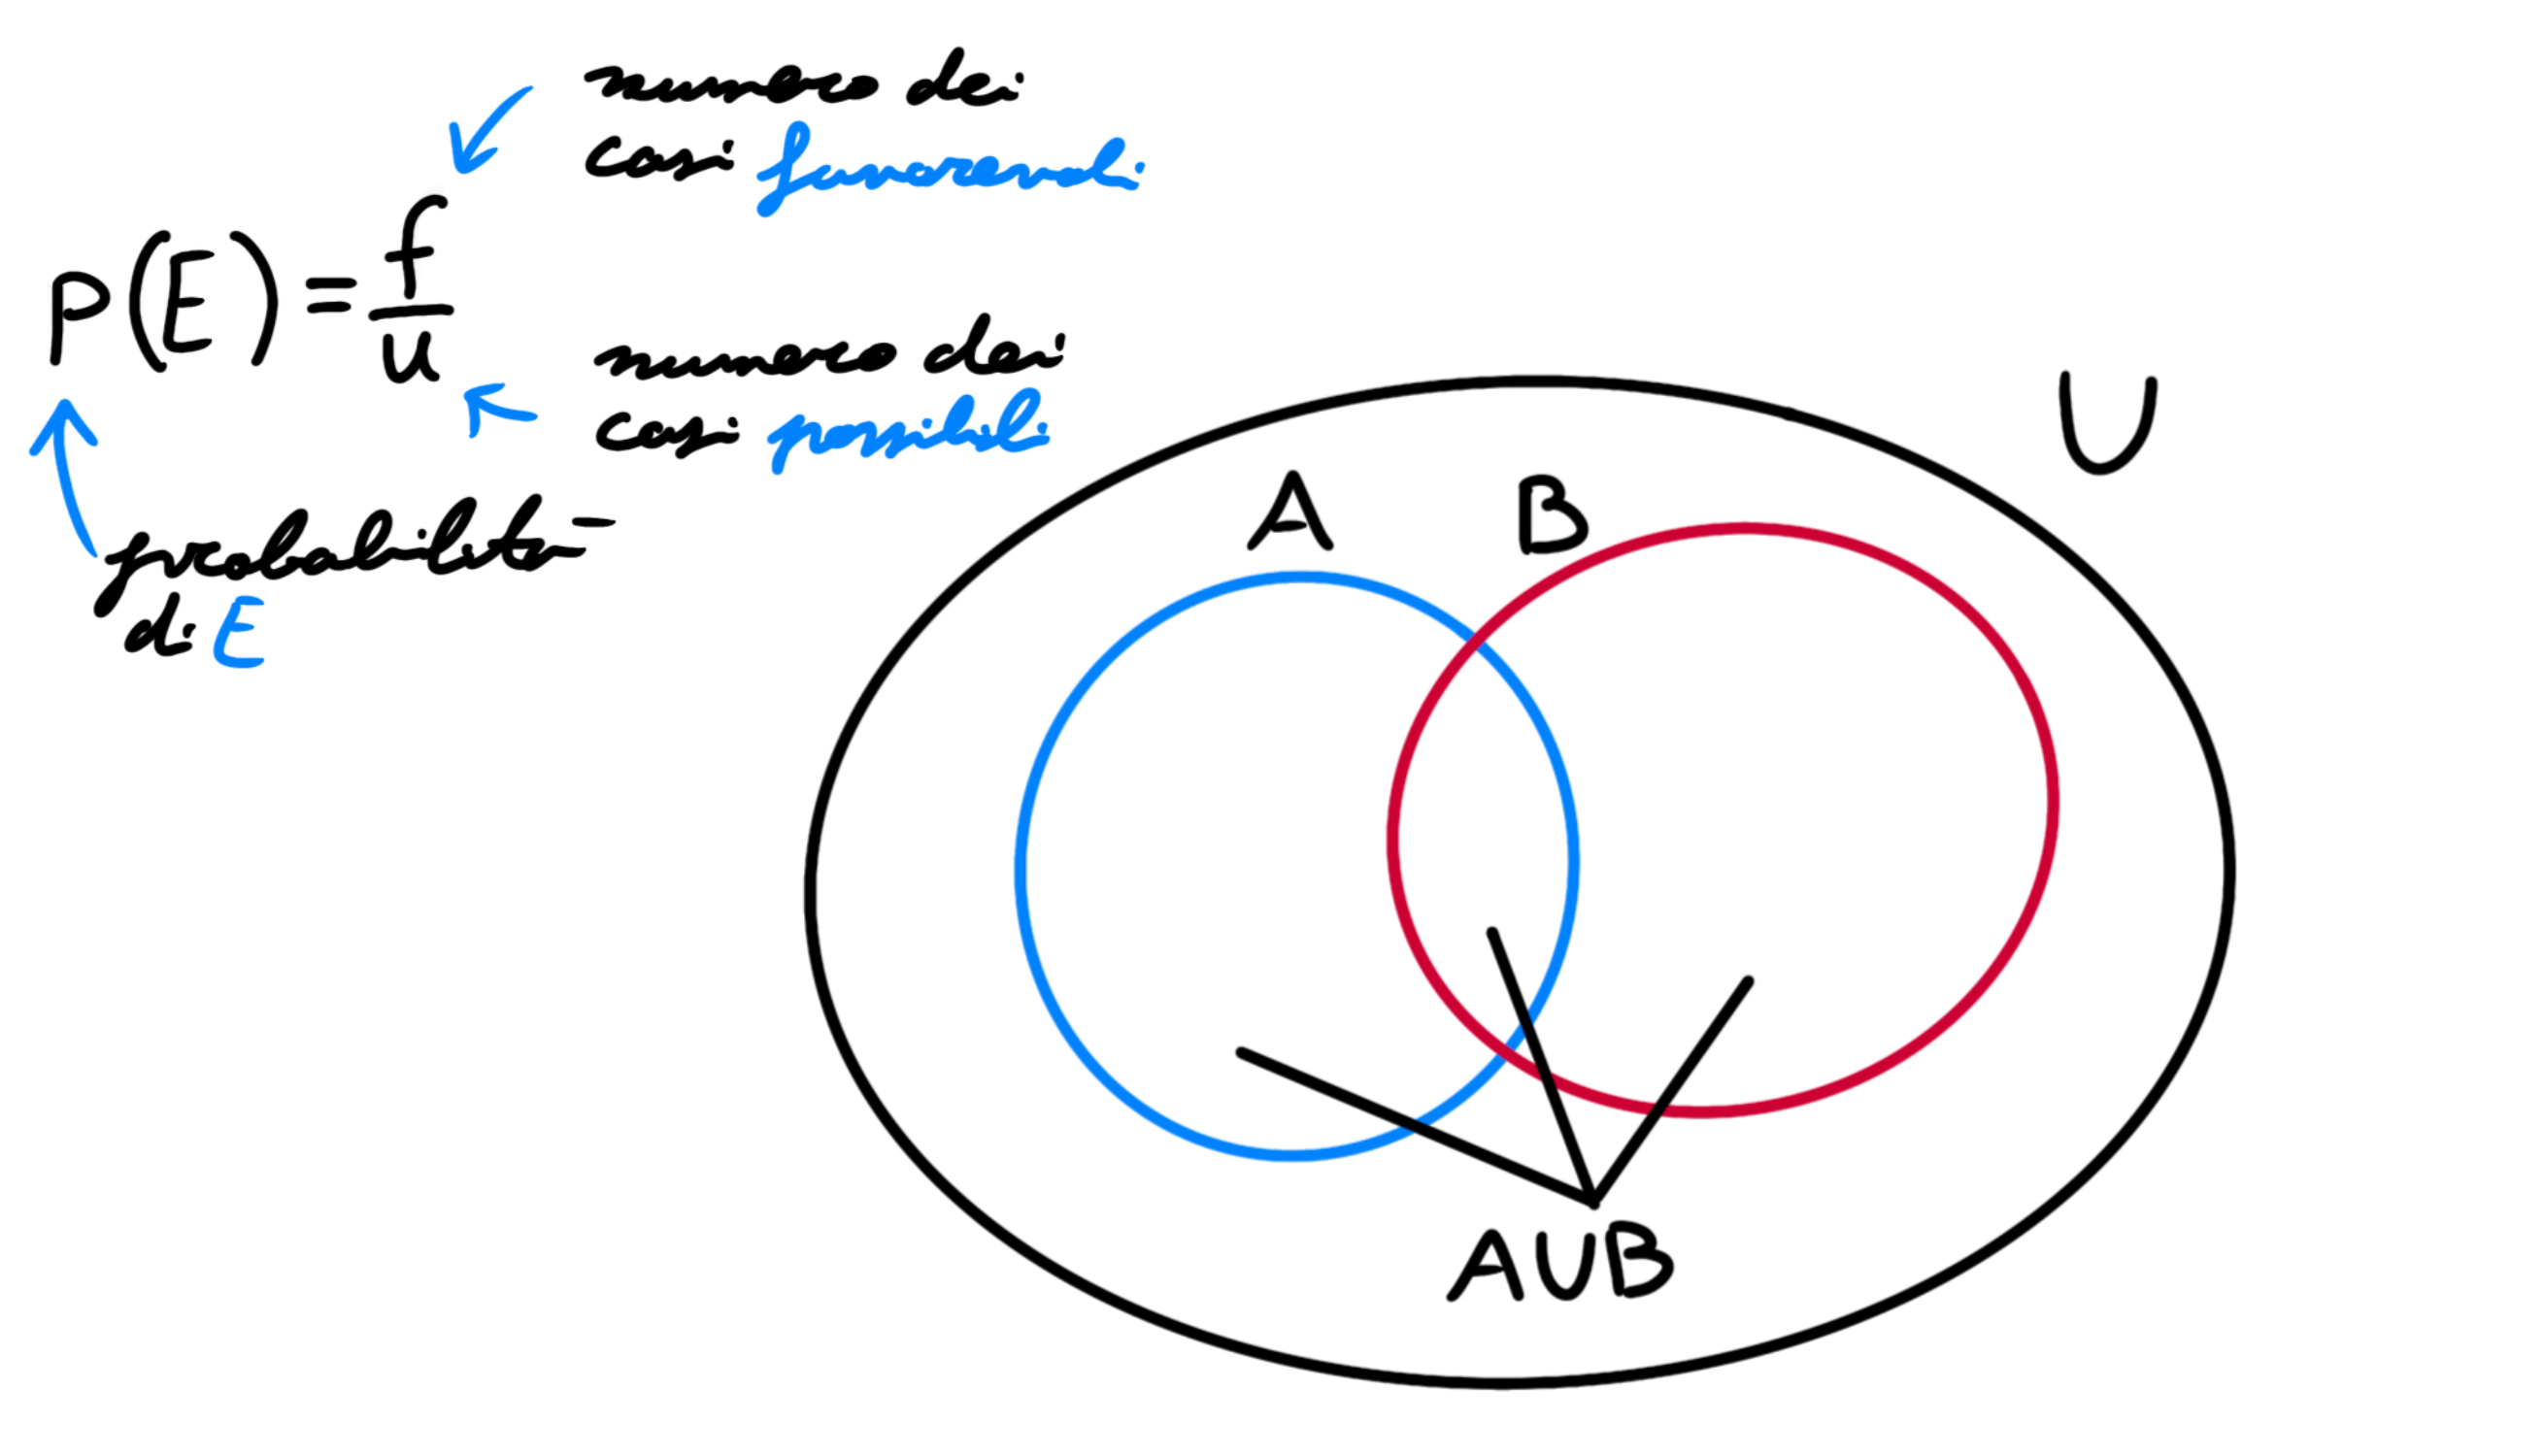 numero dei
casi favorevoli
P(E) = f/u
numero dei
casi possibili
probabilità
di E
U
A
B
AUB